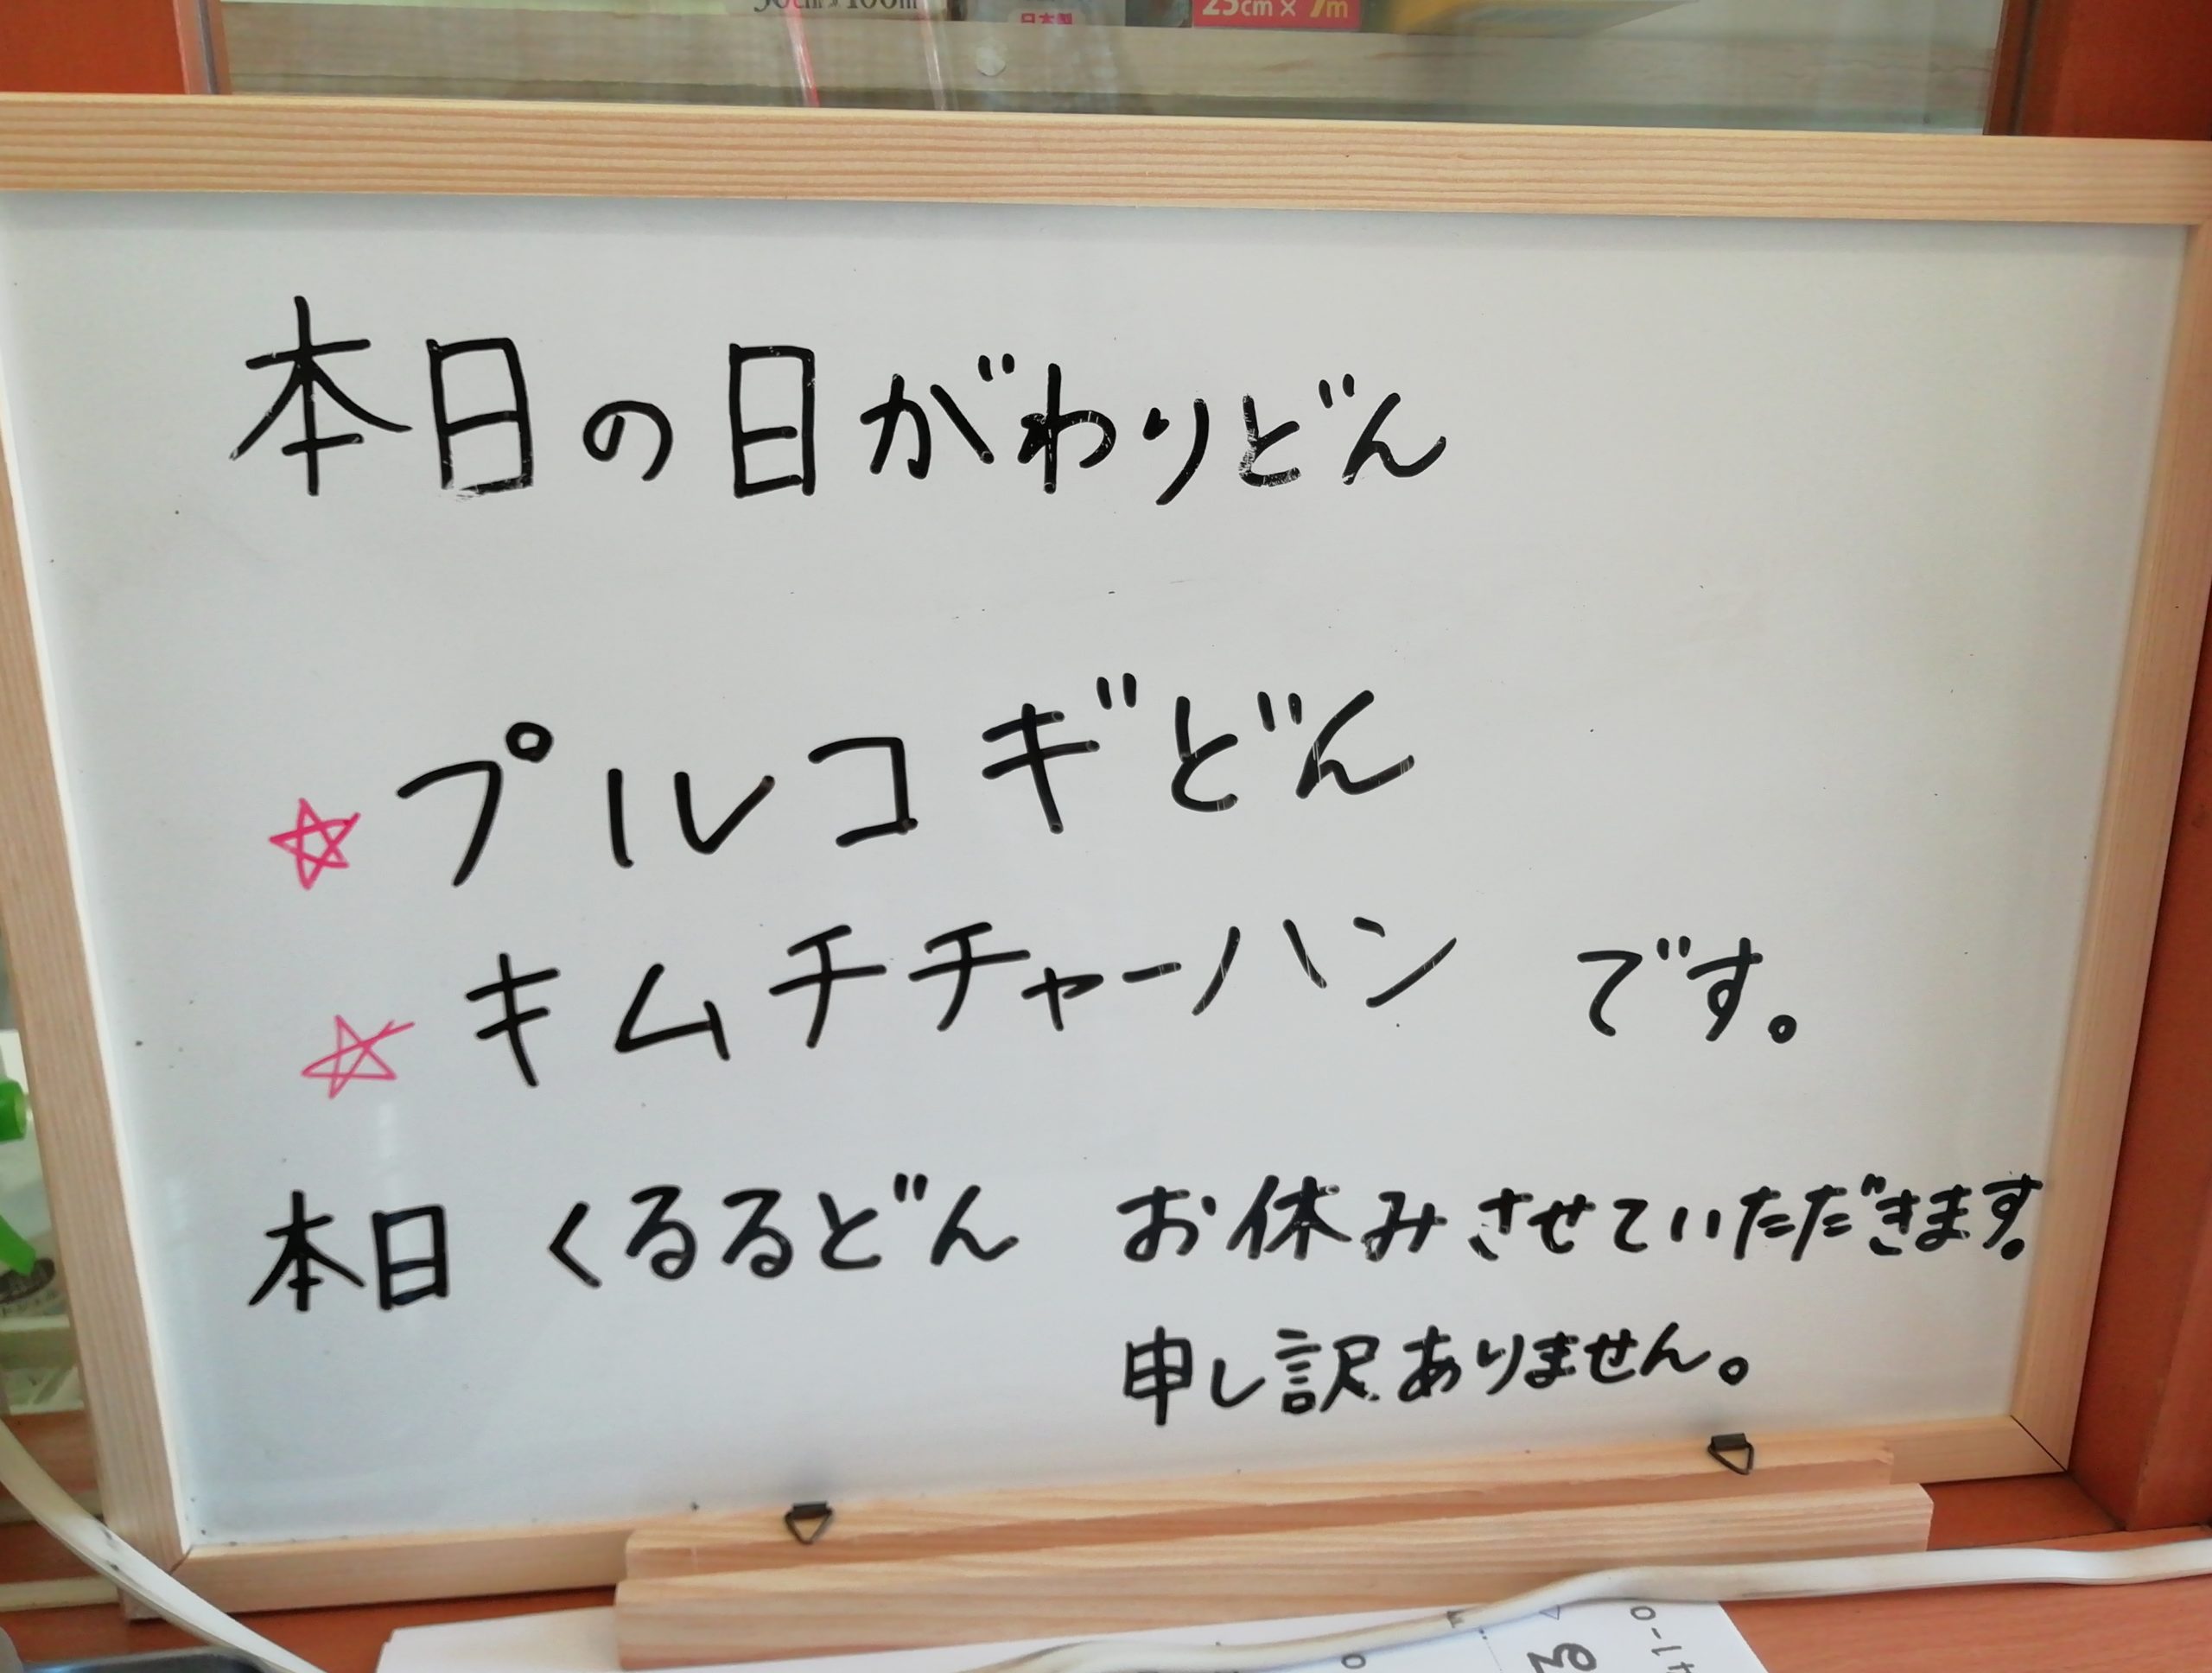 日本製
25cm × 7m
本日の日がわりどん
☆プルコギどん
☆キムチチャーハン です。
本日 くるるどん お休みさせていただきます。
申し訳ありません。